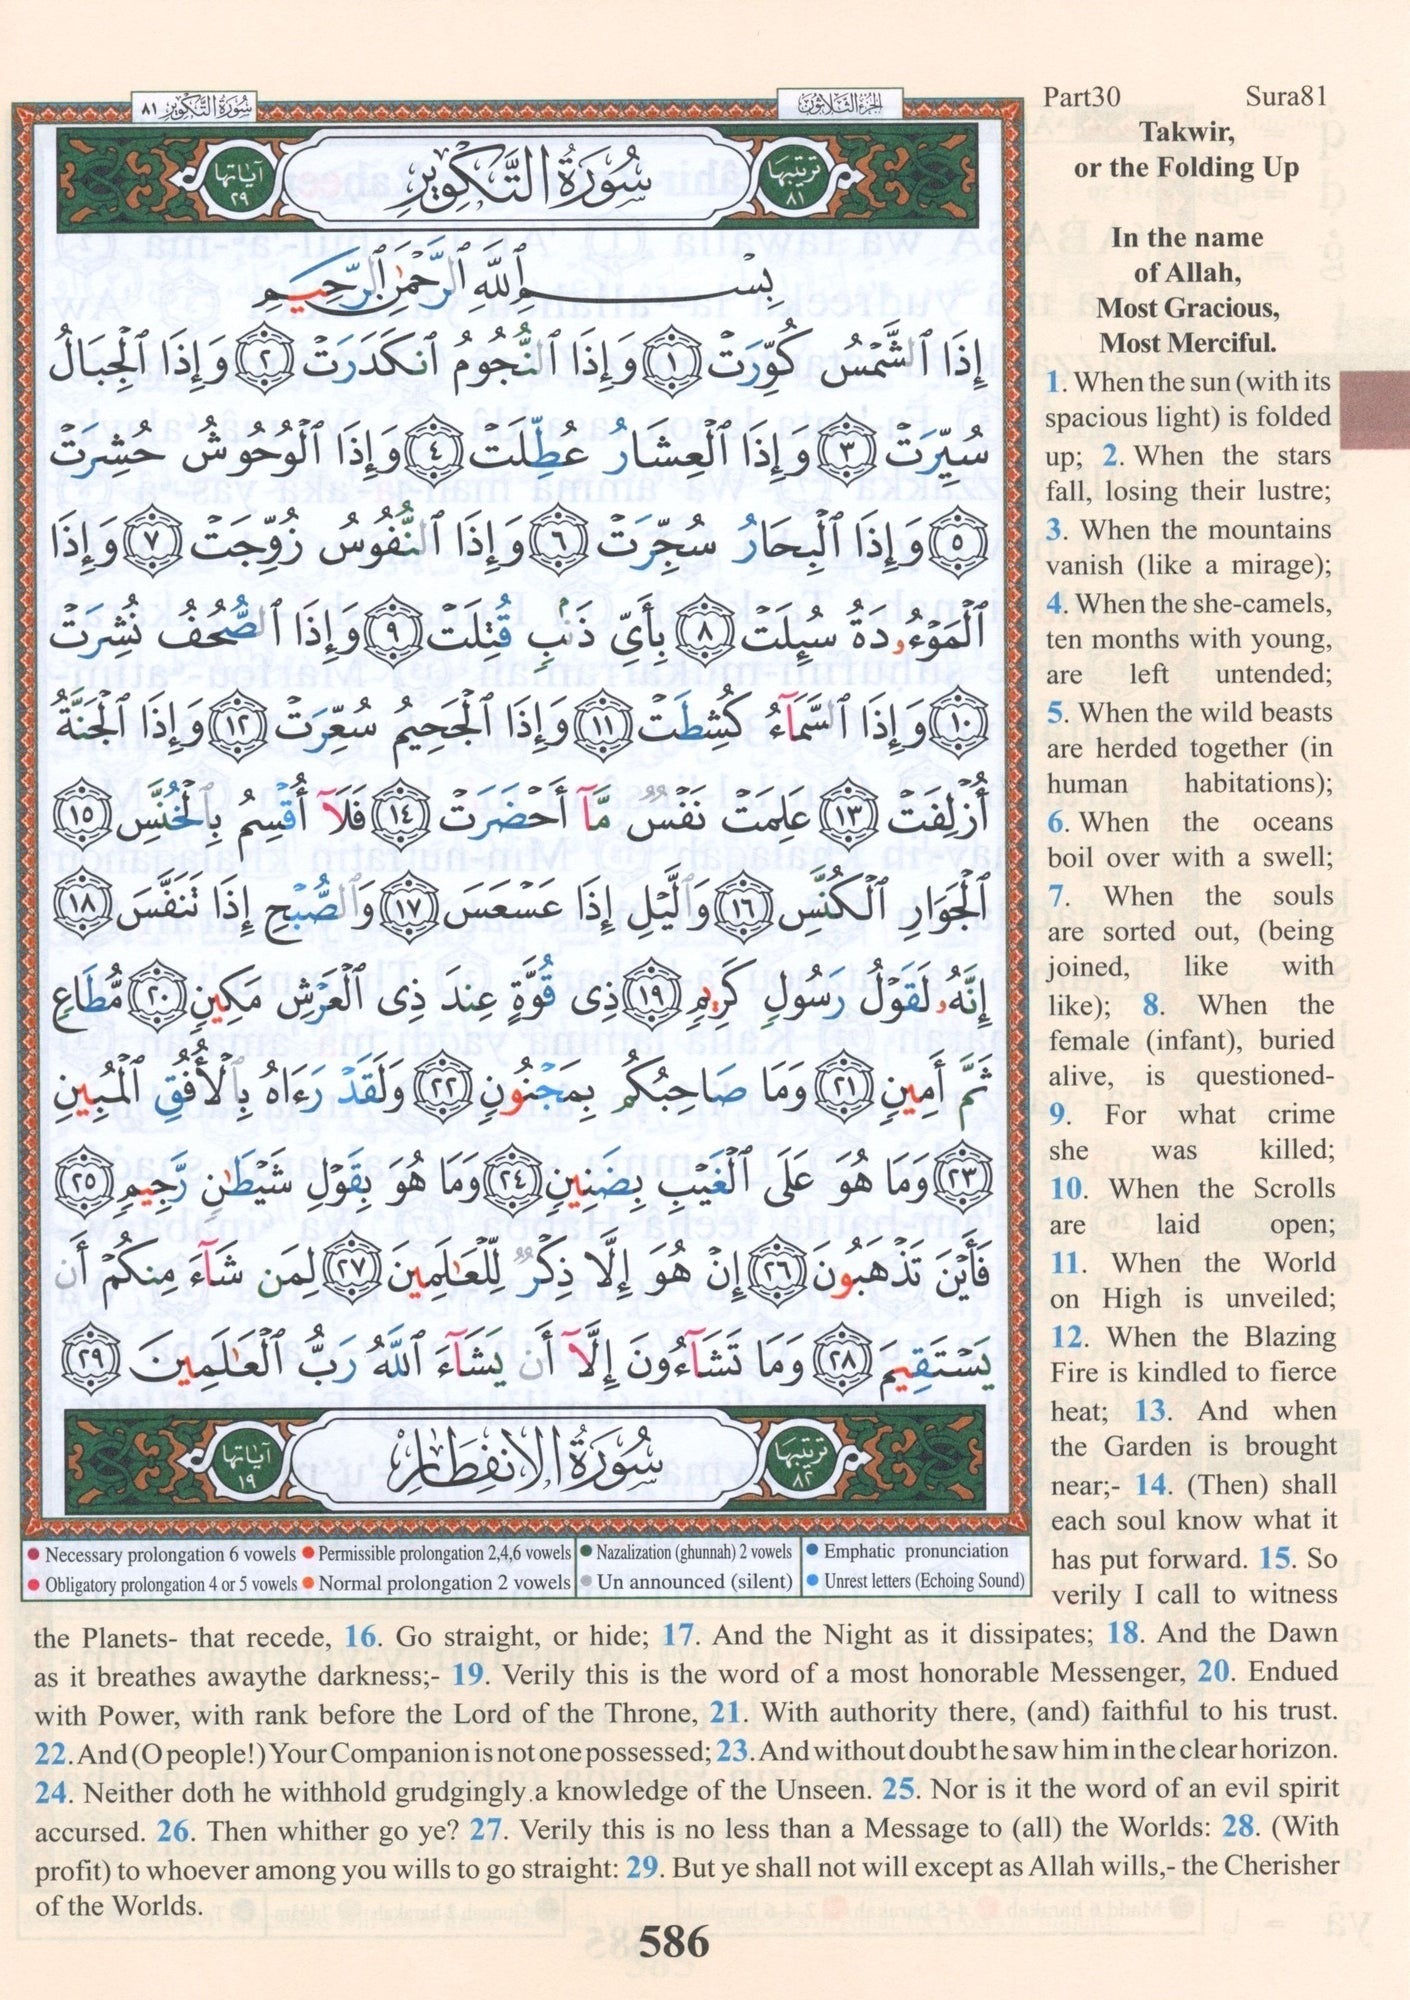 سُورَةُ التَّكْوِيرِ ٨١
الجزءُ الثَّلَاثُونَ
Part30 Sura81
آيَاتُهَا ٢٩
سُورَةُ التَّكْوِيرِ
تَرْتِيبُهَا ٨١
بِسْمِ ٱللَّهِ ٱلرَّحْمَٰنِ ٱلرَّحِيمِ
إِذَا ٱلشَّمْسُ كُوِّرَتْ ١ وَإِذَا ٱلنُّجُومُ ٱنكَدَرَتْ ٢ وَإِذَا ٱلْجِبَالُ
سُيِّرَتْ ٣ وَإِذَا ٱلْعِشَارُ عُطِّلَتْ ٤ وَإِذَا ٱلْوُحُوشُ حُشِرَتْ
٥ وَإِذَا ٱلْبِحَارُ سُجِّرَتْ ٦ وَإِذَا ٱلنُّفُوسُ زُوِّجَتْ ٧ وَإِذَا
ٱلْمَوْءُۥدَةُ سُئِلَتْ ٨ بِأَىِّ ذَنۢبٍ قُتِلَتْ ٩ وَإِذَا ٱلصُّحُفُ نُشِرَتْ
١٠ وَإِذَا ٱلسَّمَآءُ كُشِطَتْ ١١ وَإِذَا ٱلْجَحِيمُ سُعِّرَتْ ١٢ وَإِذَا ٱلْجَنَّةُ
أُزْلِفَتْ ١٣ عَلِمَتْ نَفْسٌ مَّآ أَحْضَرَتْ ١٤ فَلَآ أُقْسِمُ بِٱلْخُنَّسِ ١٥
ٱلْجَوَارِ ٱلْكُنَّسِ ١٦ وَٱلَّيْلِ إِذَا عَسْعَسَ ١٧ وَٱلصُّبْحِ إِذَا تَنَفَّسَ ١٨
إِنَّهُۥ لَقَوْلُ رَسُولٍ كَرِيمٍ ١٩ ذِى قُوَّةٍ عِندَ ذِى ٱلْعَرْشِ مَكِينٍ ٢٠ مُّطَاعٍ
ثَمَّ أَمِينٍ ٢١ وَمَا صَاحِبُكُم بِمَجْنُونٍ ٢٢ وَلَقَدْ رَءَاهُ بِٱلْأُفُقِ ٱلْمُبِينِ
٢٣ وَمَا هُوَ عَلَى ٱلْغَيْبِ بِضَنِينٍ ٢٤ وَمَا هُوَ بِقَوْلِ شَيْطَٰنٍ رَّجِيمٍ ٢٥
فَأَيْنَ تَذْهَبُونَ ٢٦ إِنْ هُوَ إِلَّا ذِكْرٌ لِّلْعَٰلَمِينَ ٢٧ لِمَن شَآءَ مِنكُمْ أَن
يَسْتَقِيمَ ٢٨ وَمَا تَشَآءُونَ إِلَّآ أَن يَشَآءَ ٱللَّهُ رَبُّ ٱلْعَٰلَمِينَ ٢٩
آيَاتُهَا ١٩
سُورَةُ الانفِطَارِ
تَرْتِيبُهَا ٨٢
Necessary prolongation 6 vowels Permissible prolongation 2,4,6 vowels Nazalization (ghunnah) 2 vowels Emphatic pronunciation
Obligatory prolongation 4 or 5 vowels Normal prolongation 2 vowels Un announced (silent) Unrest letters (Echoing Sound)
Takwir,
or the Folding Up
In the name
of Allah,
Most Gracious,
Most Merciful.
1. When the sun (with its
spacious light) is folded
up; 2. When the stars
fall, losing their lustre;
3. When the mountains
vanish (like a mirage);
4. When the she-camels,
ten months with young,
are left untended;
5. When the wild beasts
are herded together (in
human habitations);
6. When the oceans
boil over with a swell;
7. When the souls
are sorted out, (being
joined, like with
like); 8. When the
female (infant), buried
alive, is questioned-
9. For what crime
she was killed;
10. When the Scrolls
are laid open;
11. When the World
on High is unveiled;
12. When the Blazing
Fire is kindled to fierce
heat; 13. And when
the Garden is brought
near;- 14. (Then) shall
each soul know what it
has put forward. 15. So
verily I call to witness
the Planets- that recede, 16. Go straight, or hide; 17. And the Night as it dissipates; 18. And the Dawn
as it breathes awaythe darkness;- 19. Verily this is the word of a most honorable Messenger, 20. Endued
with Power, with rank before the Lord of the Throne, 21. With authority there, (and) faithful to his trust.
22. And (O people!) Your Companion is not one possessed; 23. And without doubt he saw him in the clear horizon.
24. Neither doth he withhold grudgingly a knowledge of the Unseen. 25. Nor is it the word of an evil spirit
accursed. 26. Then whither go ye? 27. Verily this is no less than a Message to (all) the Worlds: 28. (With
profit) to whoever among you wills to go straight: 29. But ye shall not will except as Allah wills,- the Cherisher
of the Worlds.
586